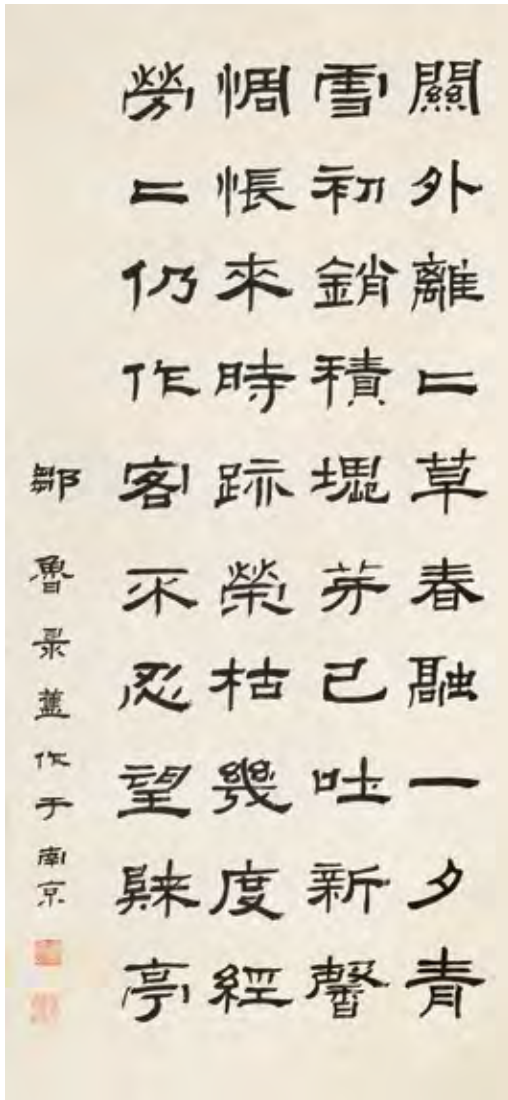 關外離二草春融一夕青
雪初銷積芽已吐新馨
惆悵來時跡榮枯幾度經
勞二仍作客不忍望亭
鄒魯录舊作于南京